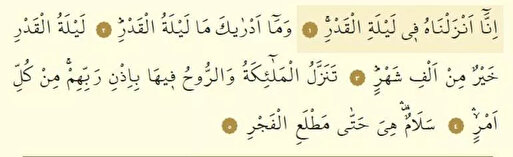 اِنَّٓا اَنْزَلْنَاهُ ف۪ي لَيْلَةِ الْقَدْرِۚ ﴿١﴾ وَمَٓا اَدْرٰيكَ مَا لَيْلَةُ الْقَدْرِۜ ﴿٢﴾ لَيْلَةُ الْقَدْرِ
خَيْرٌ مِنْ اَلْفِ شَهْرٍۜ ﴿٣﴾ تَنَزَّلُ الْمَلٰٓئِكَةُ وَالرُّوحُ ف۪يهَا بِاِذْنِ رَبِّهِمْۚ مِنْ كُلِّ
اَمْرٍۙۛ ﴿٤﴾ سَلَامٌ۠ۛ هِيَ حَتّٰى مَطْلَعِ الْفَجْرِ ﴿٥﴾